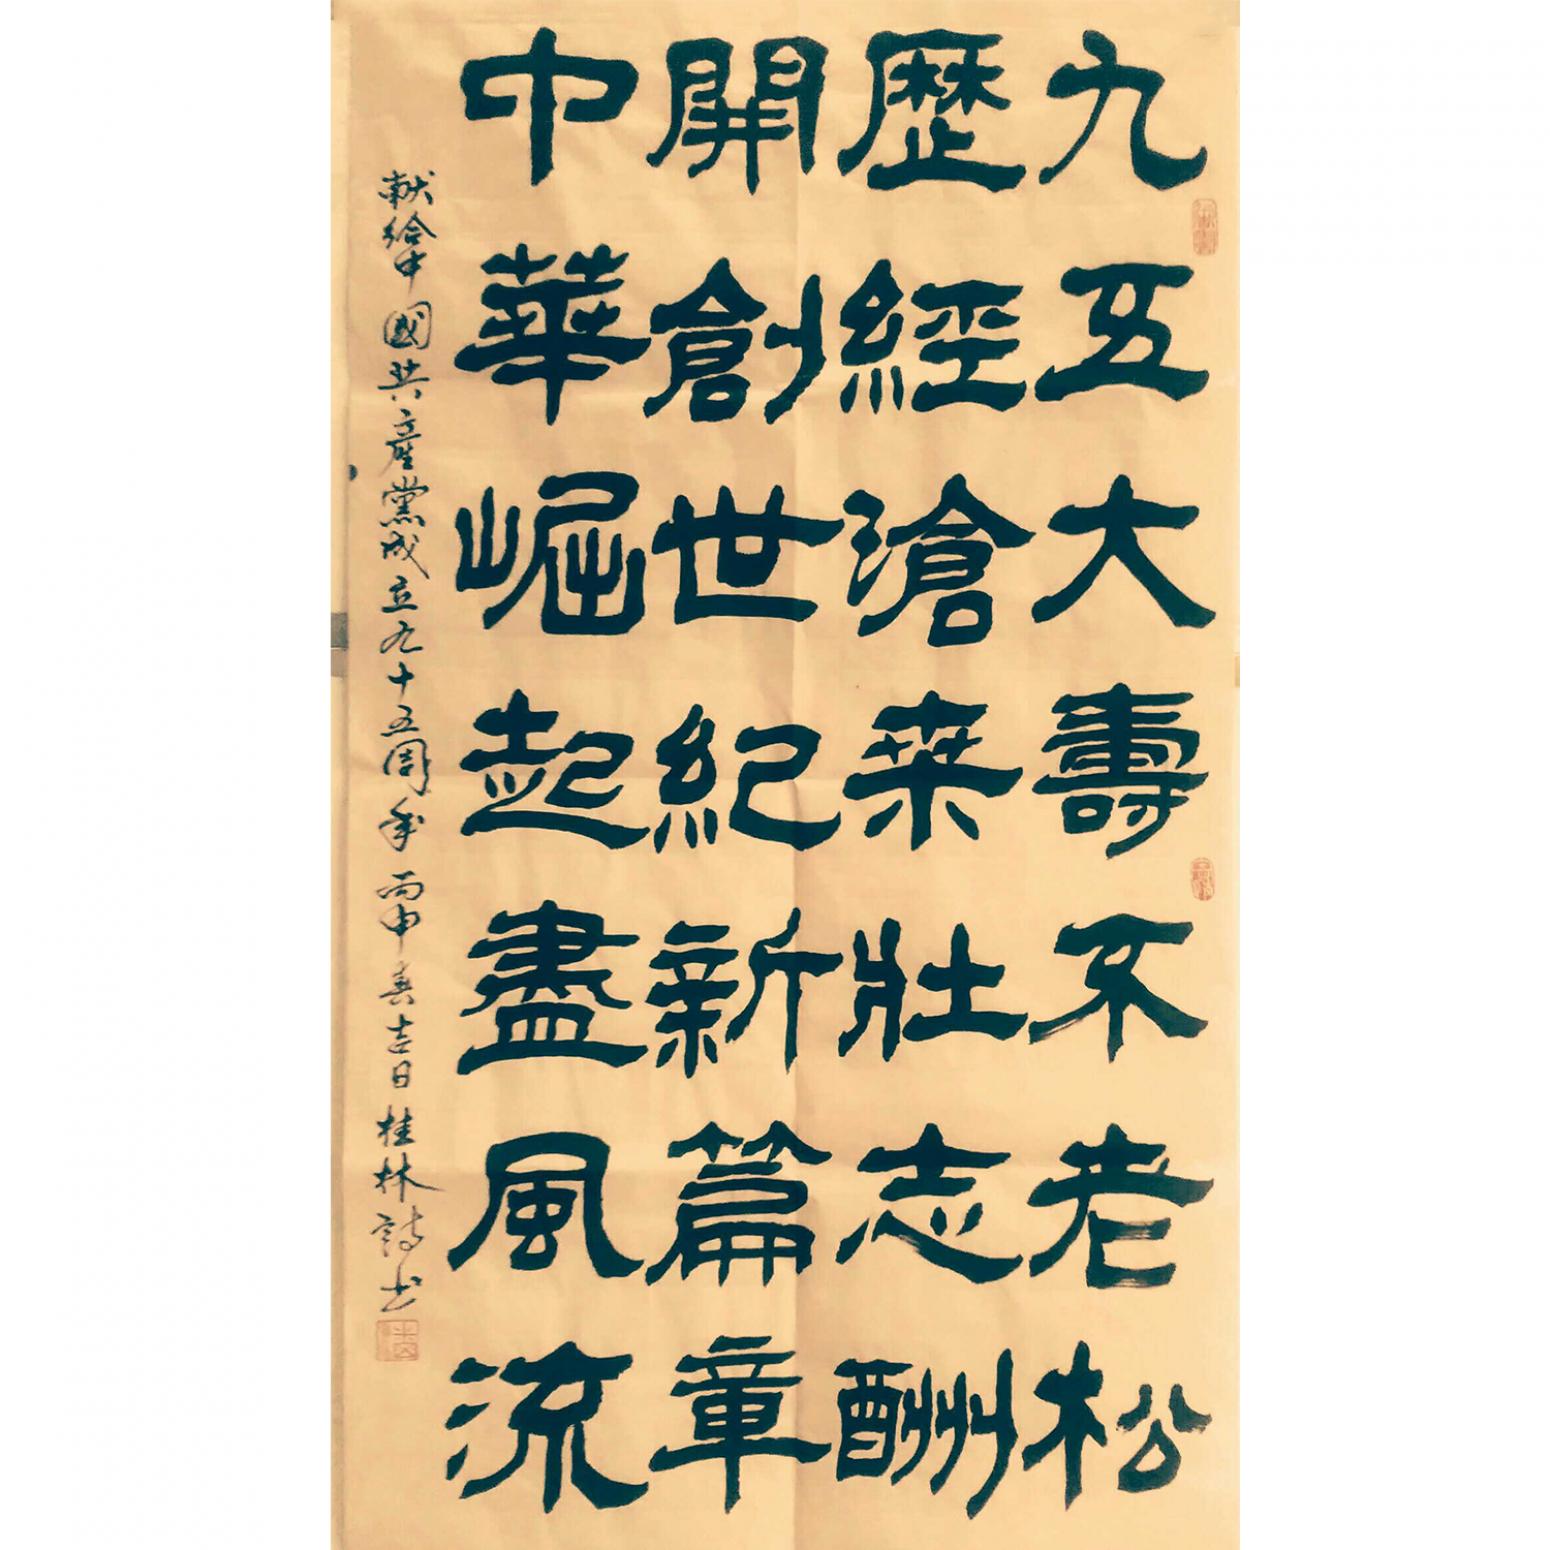 九五大壽不老松
歷經滄桒壯志酬
開創世紀新篇章
中華崛起盡風流
献给中國共產黨成立九十五周年 丙申春吉日 桂林詩书